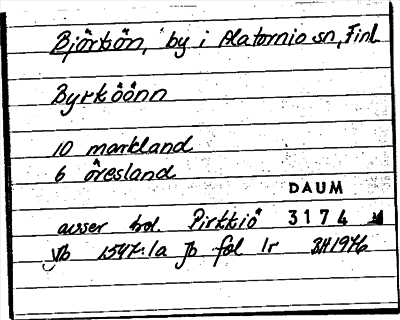 Björkön, by i Alatornio sn, Finl.
Byrköönn
10 markland
6 öresland
DAUM
avser bol. Pirkkiö 3174
Jb 1547:1a Jb fol 1r BH1976